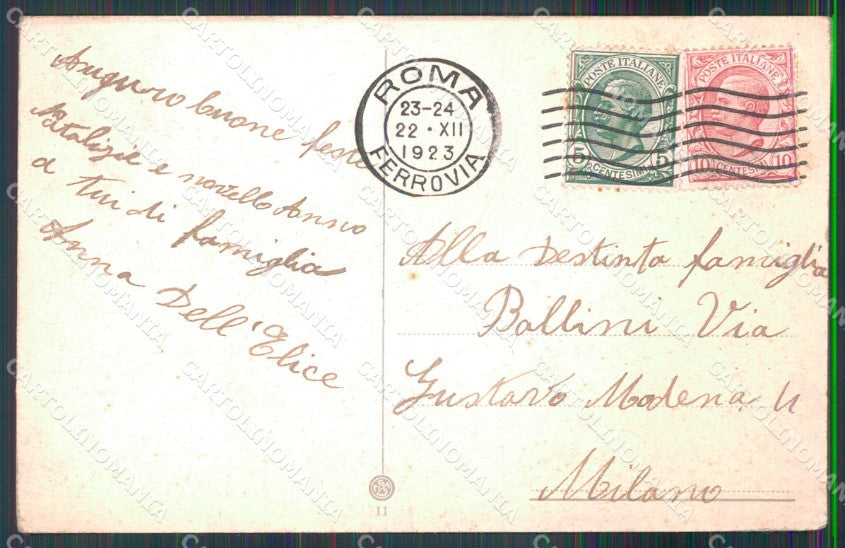 Auguro buone feste
Natalizie e novello Anno
a tui di famiglia
Anna Dell'Elice
ROMA
23-24
22 · XII
1923
FERROVIA
POSTE ITALIANE
5 5
CENTESIMI
POSTE ITALIANE
10 10
CENTESIMI
Alla Destinta famiglia
Ballini Via
Gustavo Modena 4
Milano
11
CARTOLINOMANIA